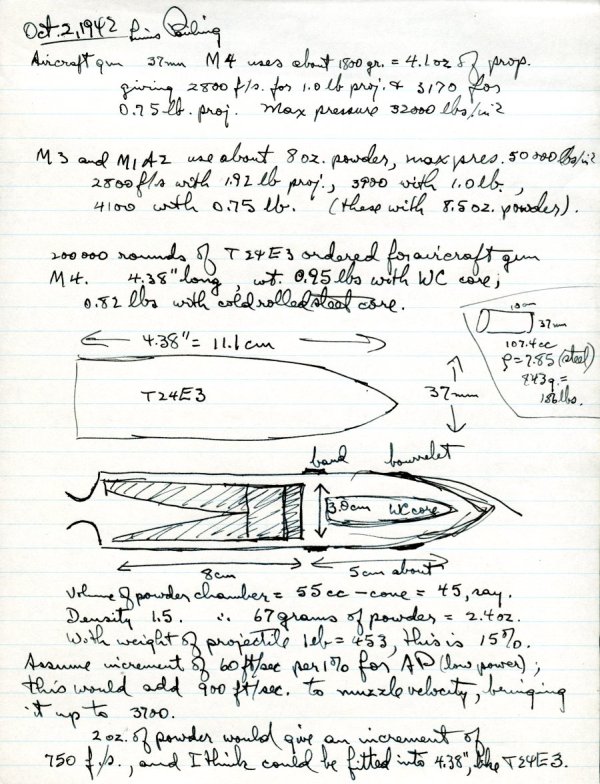 Oct. 2, 1942 Linus Pauling
Aircraft gun 37mm M4 uses about 1800 gr. = 4.1 oz of prop.
giving 2800 f/s. for 1.0 lb proj. & 3170 for
0.75 lb. proj. Max pressure 32000 lbs/in2
M3 and M1A2 use about 8 oz. powder, max pres. 50000 lbs/in2
2800 f/s with 1.92 lb proj., 3900 with 1.0 lb.,
4100 with 0.75 lb. (these with 8.5 oz. powder).
200000 rounds of T24E3 ordered for aircraft gun
M4. 4.38" long, wt. 0.95 lbs with WC core;
0.82 lbs with cold rolled steel core.
10cm
37mm
107.4cc
ρ=7.85 (steel)
843g. =
1.86 lbs.
4.38" = 11.1 cm
T24E3
37mm
band bourrelet
3.0cm WC core
8cm 5cm about
Volume of powder chamber = 55cc - cone = 45, say.
Density 1.5. ∴ 67 grams of powder = 2.4 oz.
With weight of projectile 1 lb = 453, this is 15%.
Assume increment of 60 ft/sec per 1% for AP (low power);
this would add 900 ft/sec. to muzzle velocity, bringing
it up to 3700.
2 oz. of powder would give an increment of
750 f./s., and I think could be fitted into 4.38", like T24E3.